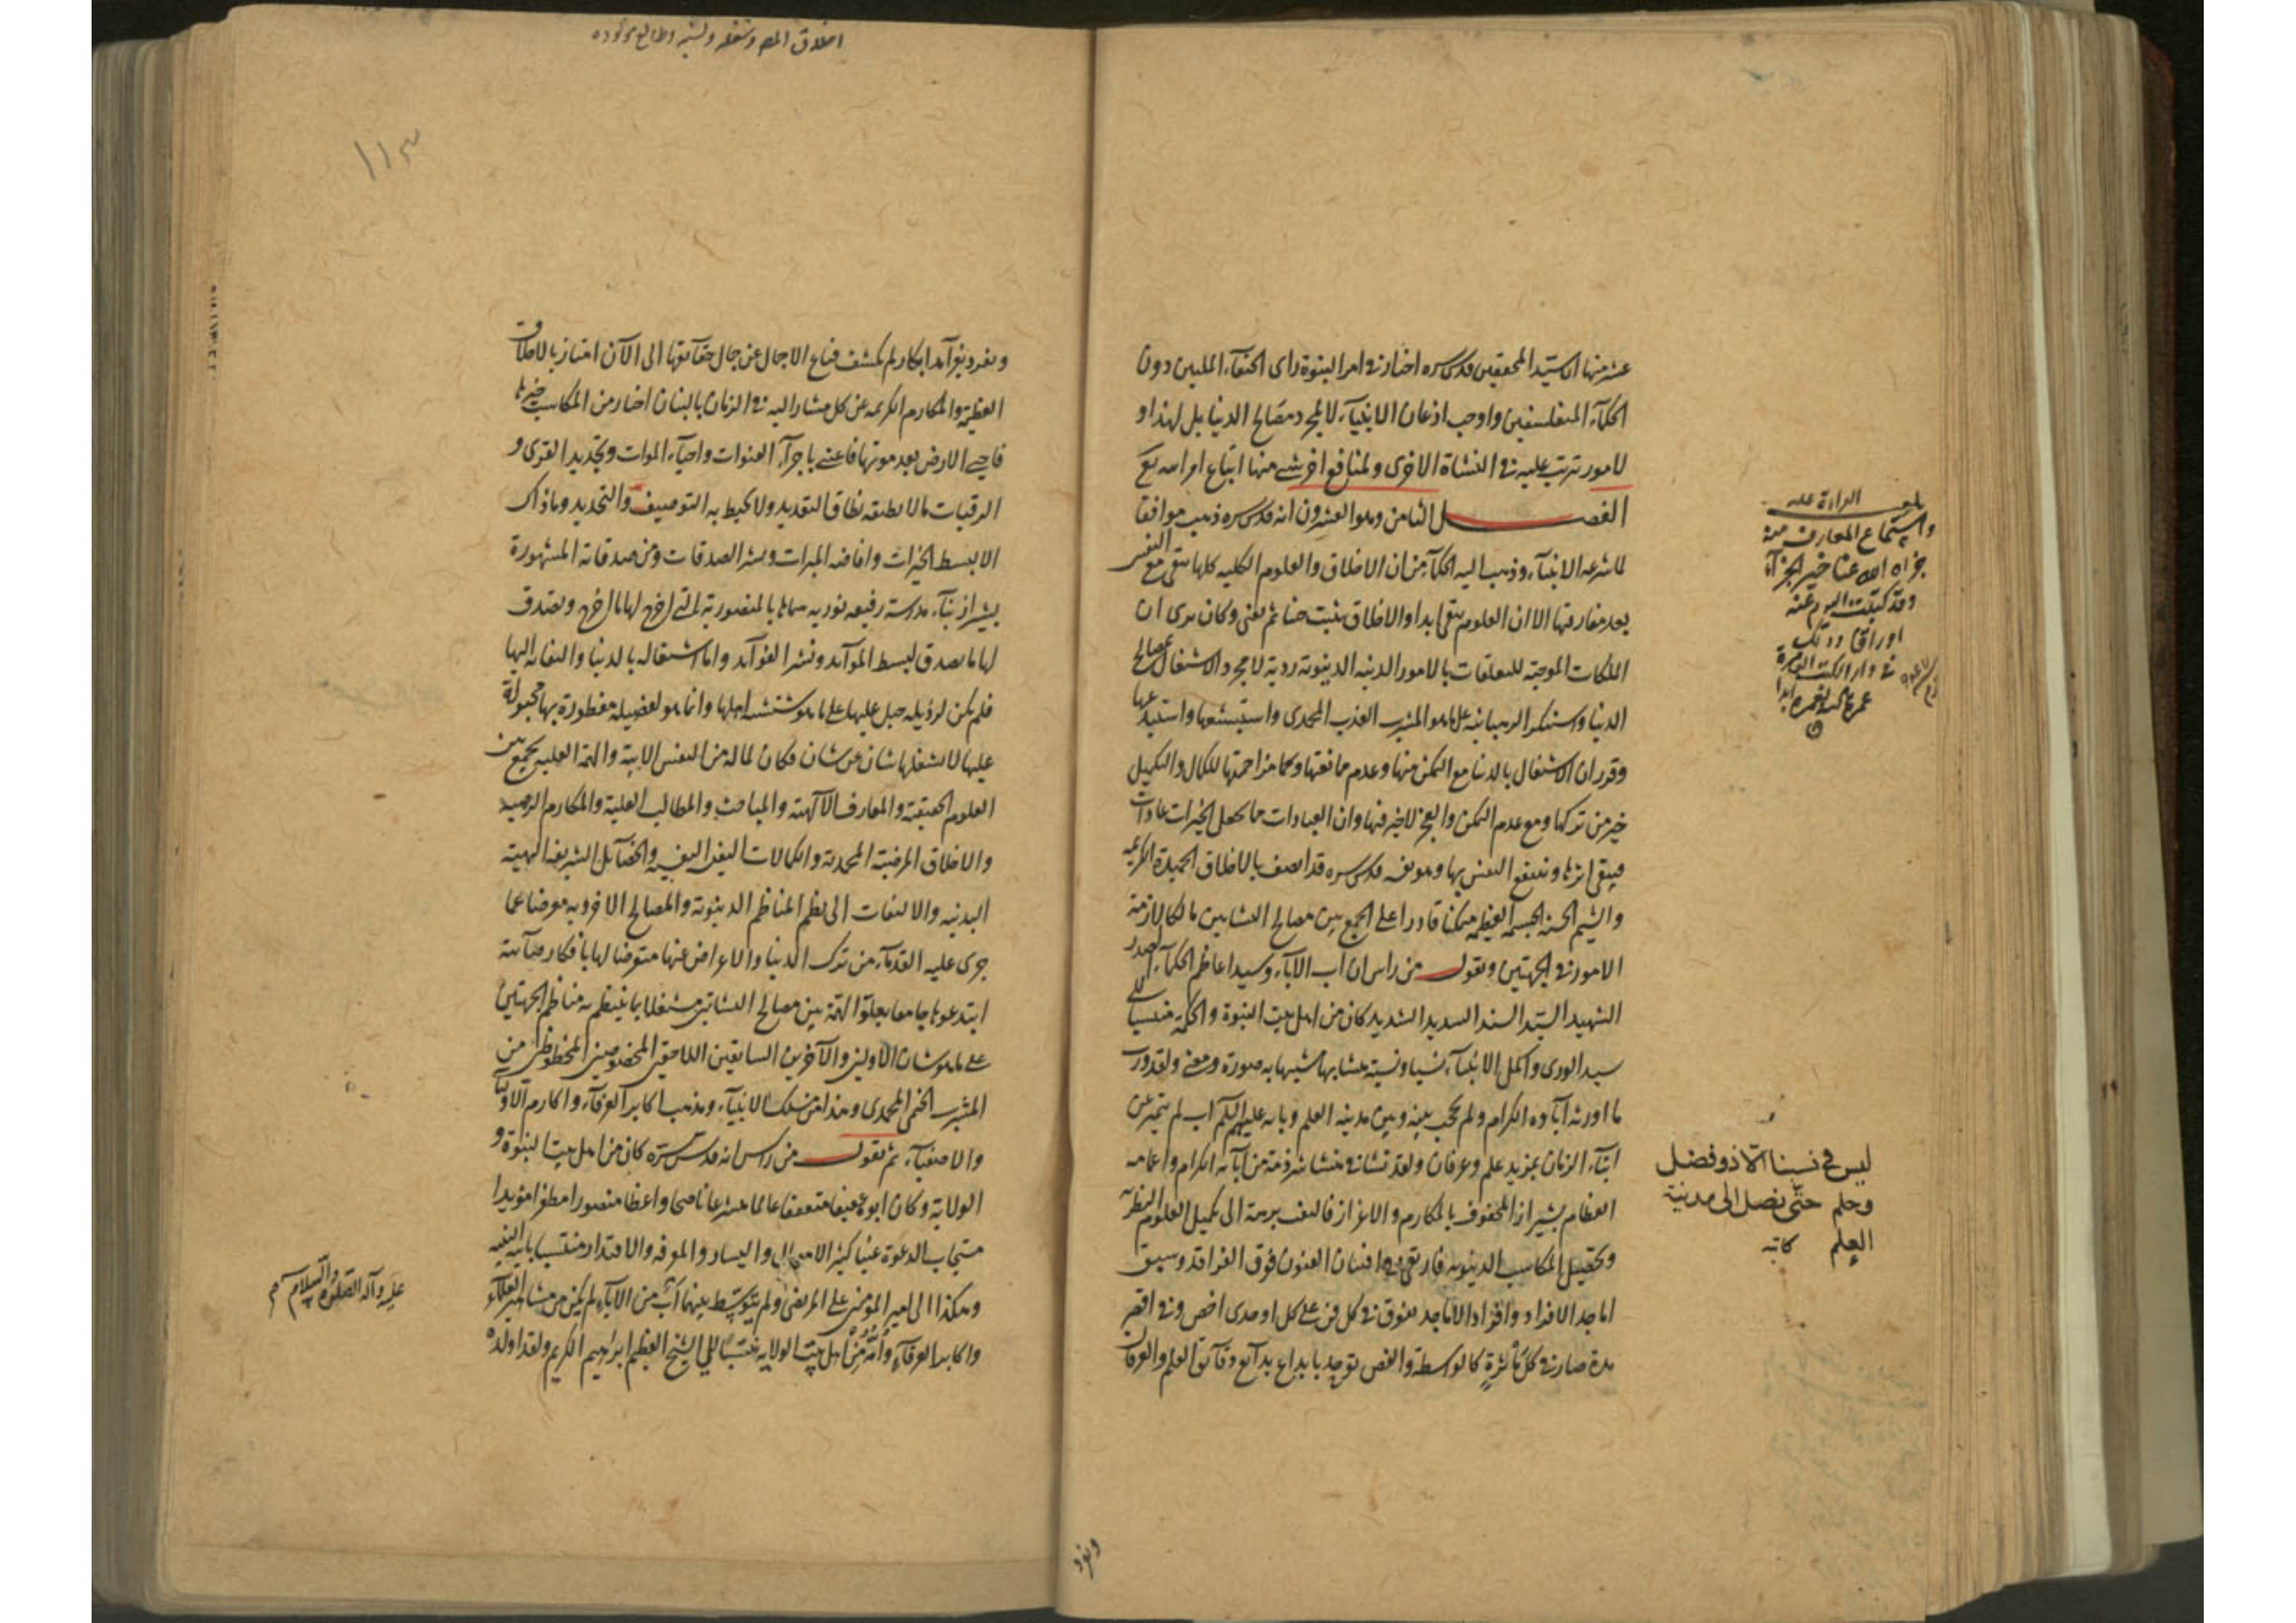 عشر منها ان سيد المحققين قدس سره اختار في امر النبوة راى الحنفآء المليين دون
الحكمآء المتفلسفين واوجب اذعان الانبيآء لا لمجرد مصالح الدنيا بل لهذا و
لامور تترتب عليه في النشاة الاخرى ولمنافع اخر شتى منها اتباع اوامر الله تع
الفصل الثامن وهو العشرون انه قدس سره ذهب موافقا
لما شرعه الانبيآء وذهب اليه الحكمآء من ان الاخلاق والعلوم الكلية كلها تبقى مع النفس
بعد مفارقتها الا ان العلوم تبقى ابدا والاخلاق تثبت حينا ثم تفنى وكان يرى ان
الملكات الموجبة للتعلقات بالامور الدنية الدنيوية ردية لا مجرد الاشتغال بمصالح
الدنيا واستنكر الرهبانية على ما هو المشرب العذب المحمدى واستبشعها واستبعدها
وقرر ان الاشتغال بالدنيا مع التمكن منها وعدم ممانعتها ومزاحمتها للكمال والتكميل
خير من تركها ومع عدم التمكن والعجز لا خير فيها وان العبادات مما تجعل الخيرات عادات
فيبقى اثرها وتنتفع النفس بها وهو نفسه قدس سره قد اتصف بالاخلاق الحميدة الكريمة
والشيم الحسنة الجسيمة العظيمة متمكنا قادرا على الجمع بين مصالح النشاتين مالكا لازمة
الامور في الجهتين ونقول من راس ان اب الآباء وسيد اعاظم الحكمآء الصدر
الشهيد السيد السند السديد الشديد كان من اهل بيت النبوة والحكمة منتسبا الى
سيد الورى واكمل الانبيآء نسبا ونسبة مشابها شبيها به صورة ومعنى ولقد ورث
ما اورثه آباؤه الكرام ولم يحجب بينه وبين مدينة العلم وبابه عليهم السلام اب لم يتميز عن
ابنآء الزمان بمزيد علم وعرفان ولقد نشا في منشا شرذمة من آبائه الكرام واعمامه
العظام بشيراز المحفوف بالمكارم والاعزاز فالتفت برمته الى تكميل العلوم النظرية
وتحصيل المكاسب الدنيوية فارتقى في افنان الفنون فوق الفراقد وسبق
اماجد الافراد وافراد الاماجد تفوق في كل فن على كل اوحدى اخص وفي اقصر
مدة صار في كل ماثرة كالواسطة والفص توحد بابداع بدآئع دقآئق العلم والعرفان
بلغ القراءة عليه
واستماع المعارف منه
جزاه الله عنا خير الجزآء
وقد كتبت اليوم عنه
اوراقا وذلك
في دار الكتب
ليس في نسبنا الا ذو فضل
وحلم حتى نصل الى مدينة
العلم كاتبه
وتفرد
وتفرد بفرآئد ابكار لم يكشف قناع الاجمال عن جمال حقآئقها الى الآن امتاز بالاخلاق
العظيمة والمكارم الكريمة عن كل مشار اليه في الزمان بالبنان اختار من المكاسب خيرها
فاحيى الارض بعد موتها فاعتنى باجرآء القنوات واحيآء الموات وتجديد القرى و
الرقبات ما لا يطيقه نطاق التقدير ولا يحيط به التوصيف والتحديد وما ذاك
الا لبسط الخيرات وافاضة المبرات ونشر الصدقات ومن صدقاته المشهورة
بشيراز بنآء مدرسة رفيعة نورية سماها بالمنصورية التى
لها ما تصدق لبسط الموآئد ونشر الفوآئد واما اشتغاله بالدنيا والتفاته اليها
فلم يكن لرذيلة جبل عليها على ما هو شنشنة اهلها وانما هو لفضيلة مفطورة بها مجبولة
عليها لا يشغلها شان عن شان فكان لما له من النفس الابية والهمة العلية يجمع بين
العلوم الحقيقية والمعارف الآلهية والمباحث والمطالب العلية والمكارم الرضية
والاخلاق المرضية المحمدية والكمالات النفسية والخصآئل الشريفة البهية
البدنية والالتفات الى نظم المناظم الدنيوية والمصالح الاخروية معرضا عما
جرى عليه القدمآء من ترك الدنيا والاعراض عنها متعرضا لها بافكار صآئبة
ابتدعوها جامعا بعلو الهمة بين مصالح النشاتين مشتغلا بما ينتظم به مناظم الجهتين
على ما هو شان الاولين والآخرين السابقين اللاحقين المخصوصين المحظوظين من
المشرب الختمى المحمدى وهذا من نسك الانبيآء ومذهب اكابر العرفآء واكارم الاوليآء
والاصفيآء ثم نقول من راس انه قدس سره كان من اهل بيت النبوة و
الولاية وكان ابوه عفيفا متعففا عالما متشرعا ناصحا واعظا منصورا مظفرا مؤيدا
مستجاب الدعوة غنيا كثير الاموال واليسار والمعرفة والاقتدار منتسبا بابيه
وهكذا الى امير المؤمنين على المرتضى ولم يتوسط بينهما اب من الآباء لم يكن من مشاهير العلمآء
واكابر العرفآء وامه من اهل بيت الولاية منتسبا الى الشيخ العظيم ابراهيم الكريم ولقد اولده
عليه وآله الصلوة والسلام
١١٣